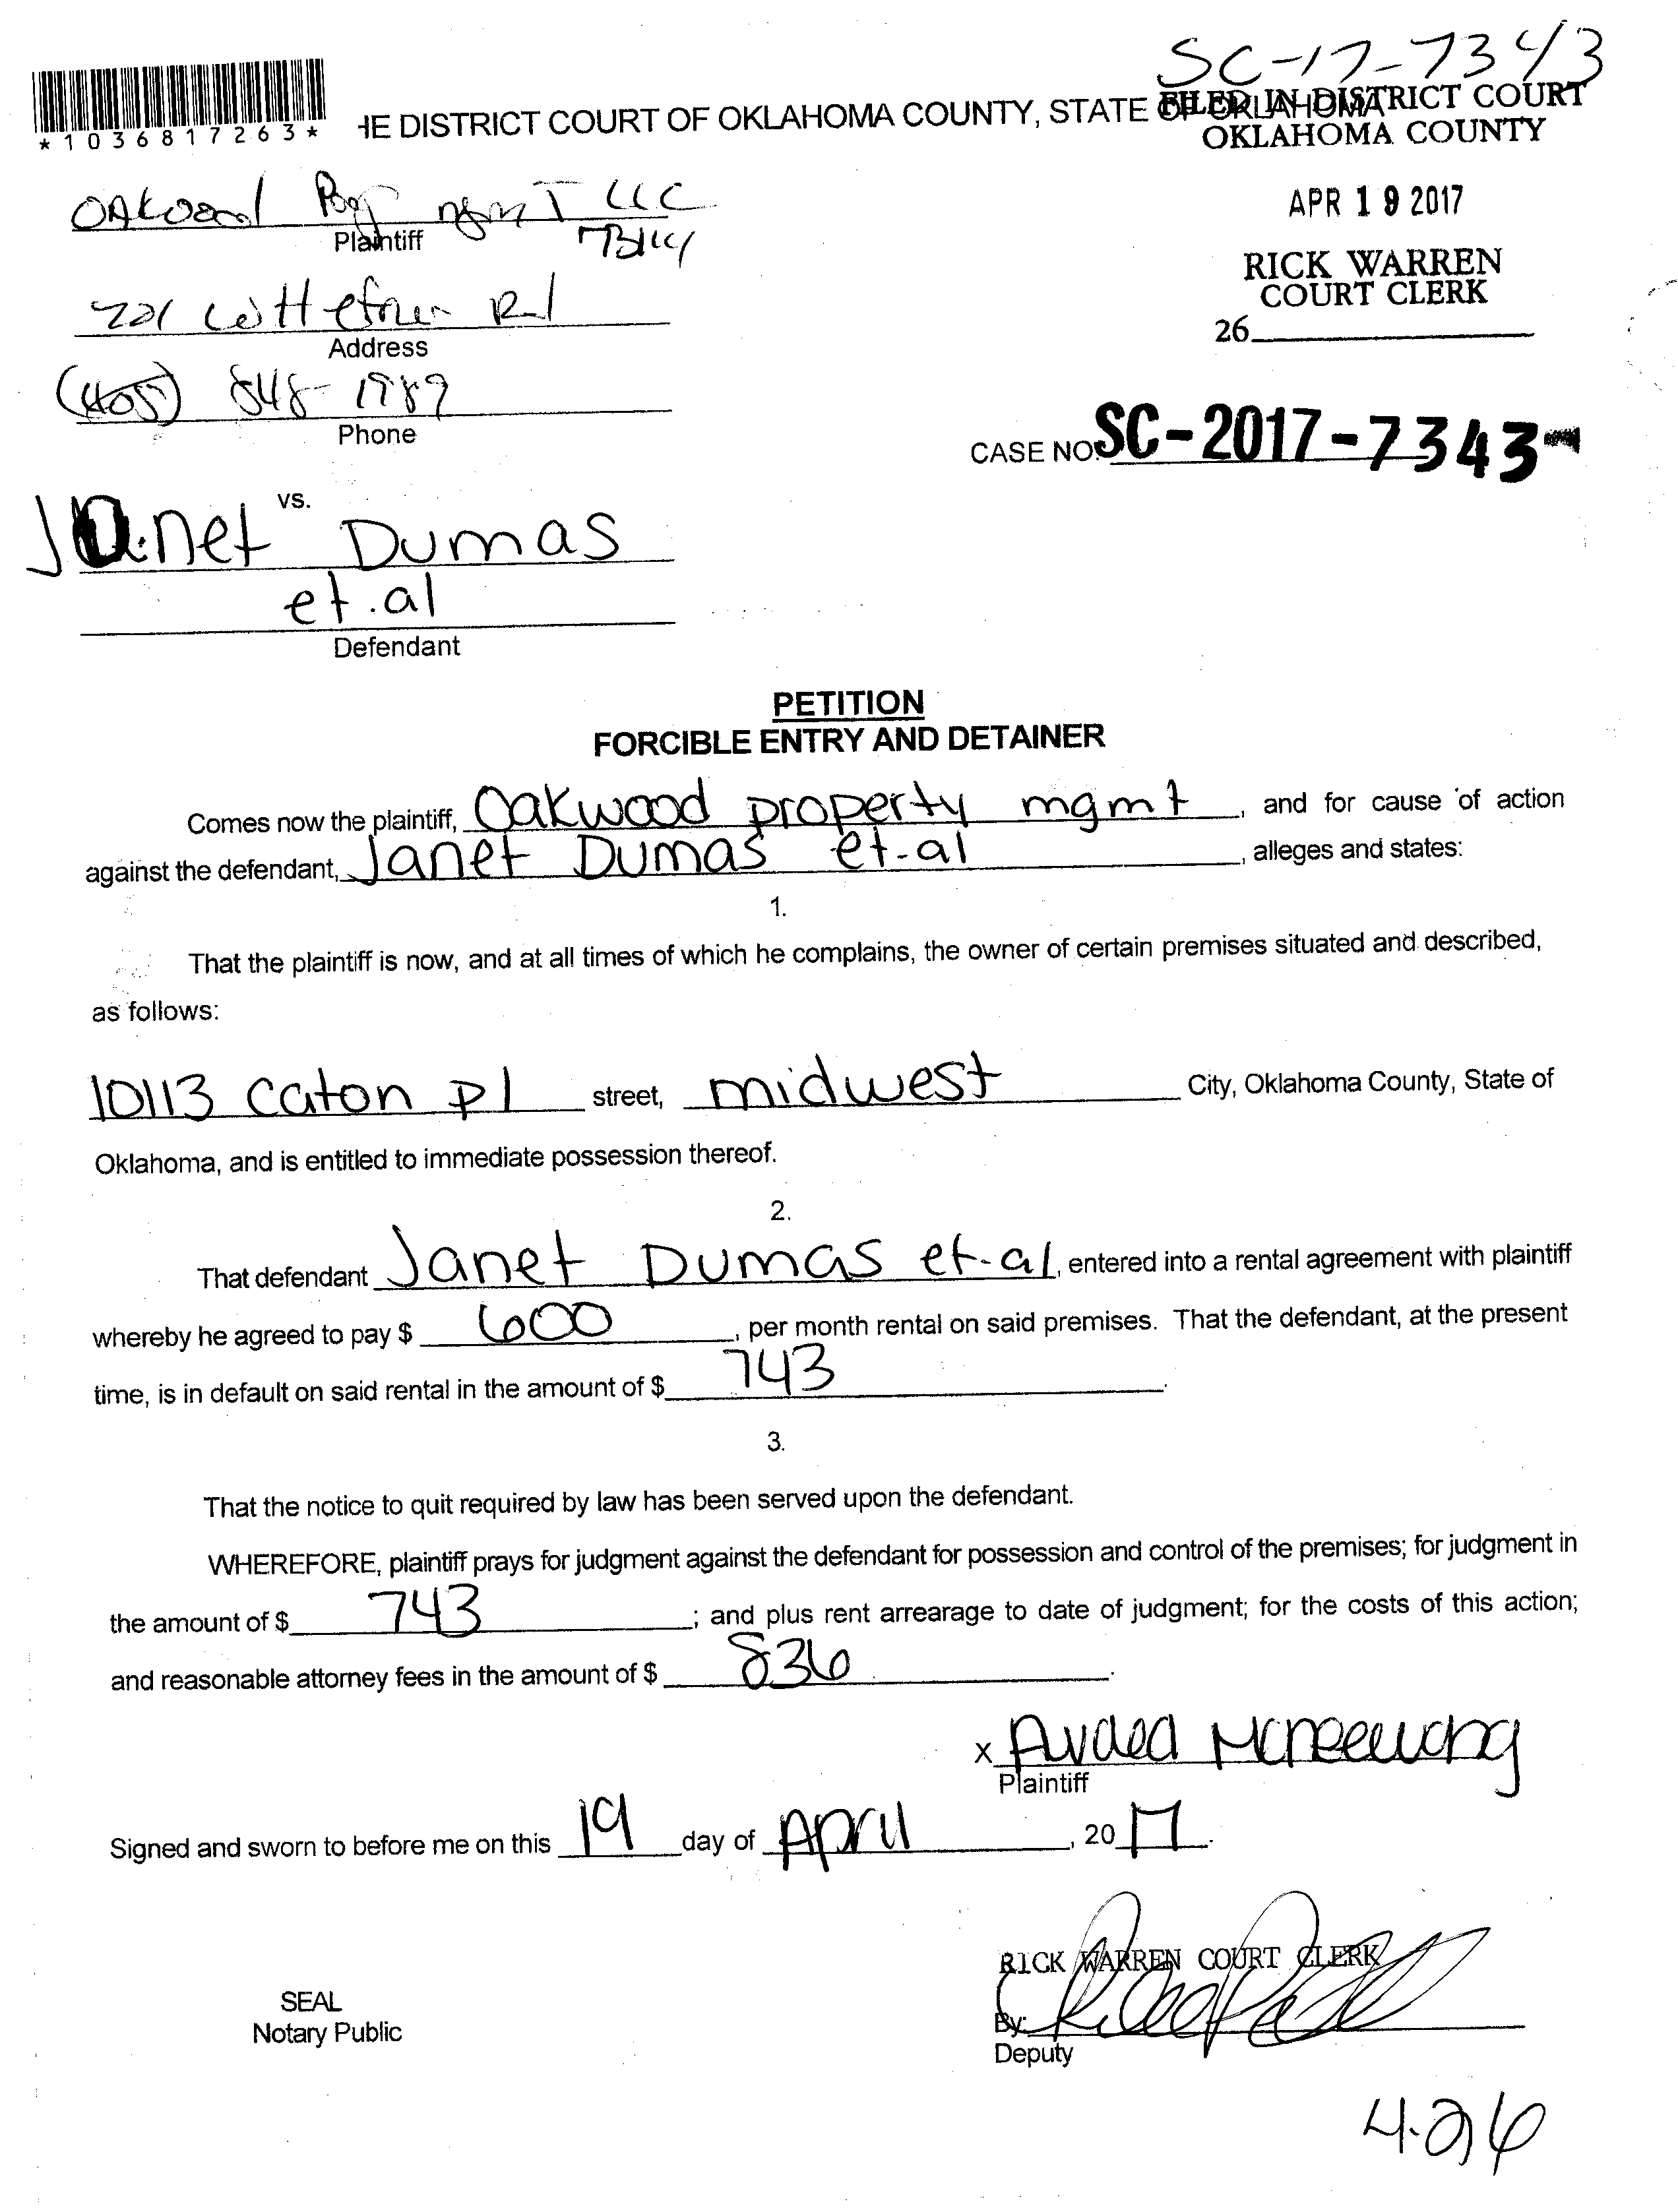 SC-17-7343
*1036817263*
HE DISTRICT COURT OF OKLAHOMA COUNTY, STATE OF OKLAHOMA
FILED IN DISTRICT COURT
OKLAHOMA COUNTY
OAKwood Prop mgmT LLC
Plaintiff
73114
APR 19 2017
RICK WARREN
COURT CLERK
26
Rd
Address
(405) 848-1989
Phone
CASE NO. SC-2017-7343
vs.
Janet Dumas
et.al
Defendant
PETITION
FORCIBLE ENTRY AND DETAINER
Comes now the plaintiff, Oakwood property mgmt, and for cause of action
against the defendant, Janet Dumas et-al, alleges and states:
1.
That the plaintiff is now, and at all times of which he complains, the owner of certain premises situated and described,
as follows:
10113 Caton pl street, midwest City, Oklahoma County, State of
Oklahoma, and is entitled to immediate possession thereof.
2.
That defendant Janet Dumas et-al, entered into a rental agreement with plaintiff
whereby he agreed to pay $ 600, per month rental on said premises. That the defendant, at the present
time, is in default on said rental in the amount of $ 743.
3.
That the notice to quit required by law has been served upon the defendant.
WHEREFORE, plaintiff prays for judgment against the defendant for possession and control of the premises; for judgment in
the amount of $ 743; and plus rent arrearage to date of judgment; for the costs of this action;
and reasonable attorney fees in the amount of $ 836.
x
Plaintiff
Signed and sworn to before me on this 19 day of April, 2017.
RICK WARREN COURT CLERK
SEAL
Notary Public
By:
Deputy
4-26